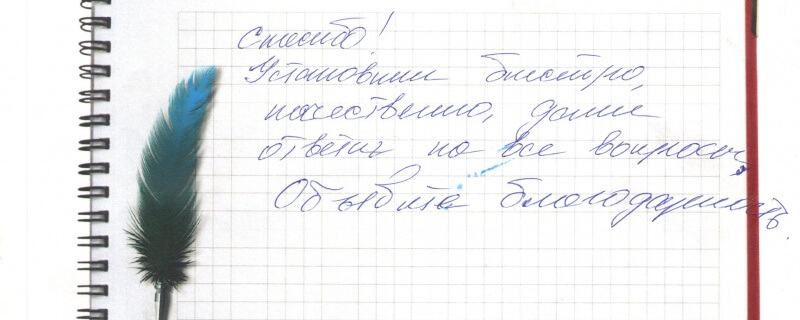 Спасибо!
Установили быстро,
качественно, дали
ответы на все вопросы,
Объявите благодарность.